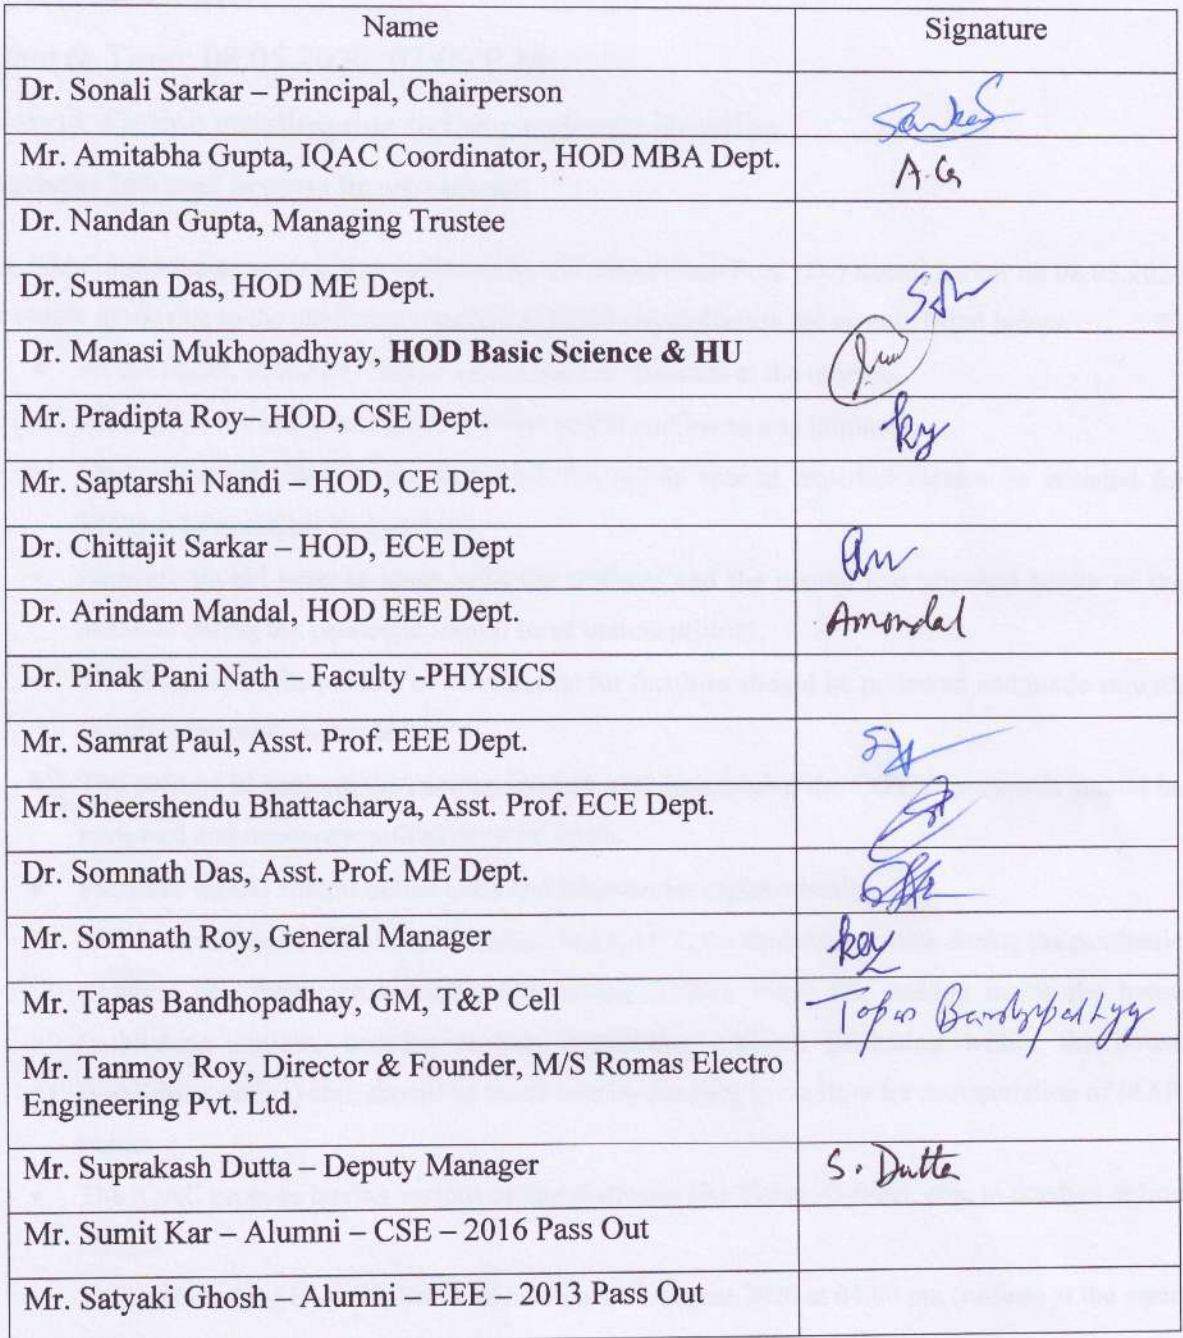 Name Signature
Dr. Sonali Sarkar – Principal, Chairperson
Mr. Amitabha Gupta, IQAC Coordinator, HOD MBA Dept. A.G
Dr. Nandan Gupta, Managing Trustee
Dr. Suman Das, HOD ME Dept.
Dr. Manasi Mukhopadhyay, HOD Basic Science & HU
Mr. Pradipta Roy– HOD, CSE Dept.
Mr. Saptarshi Nandi – HOD, CE Dept.
Dr. Chittajit Sarkar – HOD, ECE Dept
Dr. Arindam Mandal, HOD EEE Dept. Amondal
Dr. Pinak Pani Nath – Faculty -PHYSICS
Mr. Samrat Paul, Asst. Prof. EEE Dept.
Mr. Sheershendu Bhattacharya, Asst. Prof. ECE Dept.
Dr. Somnath Das, Asst. Prof. ME Dept.
Mr. Somnath Roy, General Manager Roy
Mr. Tapas Bandhopadhay, GM, T&P Cell Tapas Bandhypadhyy
Mr. Tanmoy Roy, Director & Founder, M/S Romas Electro
Engineering Pvt. Ltd.
Mr. Suprakash Dutta – Deputy Manager S. Dutta
Mr. Sumit Kar – Alumni – CSE – 2016 Pass Out
Mr. Satyaki Ghosh – Alumni – EEE – 2013 Pass Out